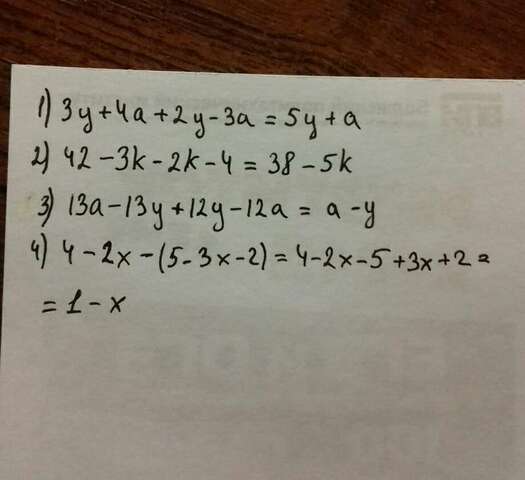 1) 3y+4a+2y-3a=5y+a
2) 42-3k-2k-4=38-5k
3) 13a-13y+12y-12a=a-y
4) 4-2x-(5-3x-2)=4-2x-5+3x+2=
=1-x